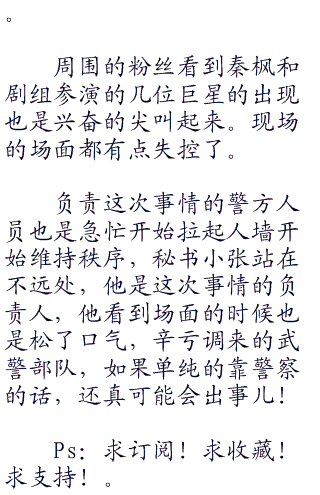 。
周围的粉丝看到秦枫和
剧组参演的几位巨星的出现
也是兴奋的尖叫起来。现场
的场面都有点失控了。
负责这次事情的警方人
员也是急忙开始拉起人墙开
始维持秩序，秘书小张站在
不远处，他是这次事情的负
责人，他看到场面的时候也
是松了口气，辛亏调来的武
警部队，如果单纯的靠警察
的话，还真可能会出事儿！
Ps：求订阅！求收藏！
求支持！。